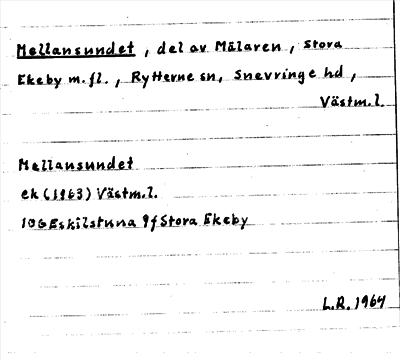 Mellansundet, del av Mälaren, Stora
Ekeby m.fl., Rytterne sn, Snevringe hd,
Västm.l.
Mellansundet
ek (1963) Västm.l.
10G Eskilstuna 9f Stora Ekeby
L.R. 1964